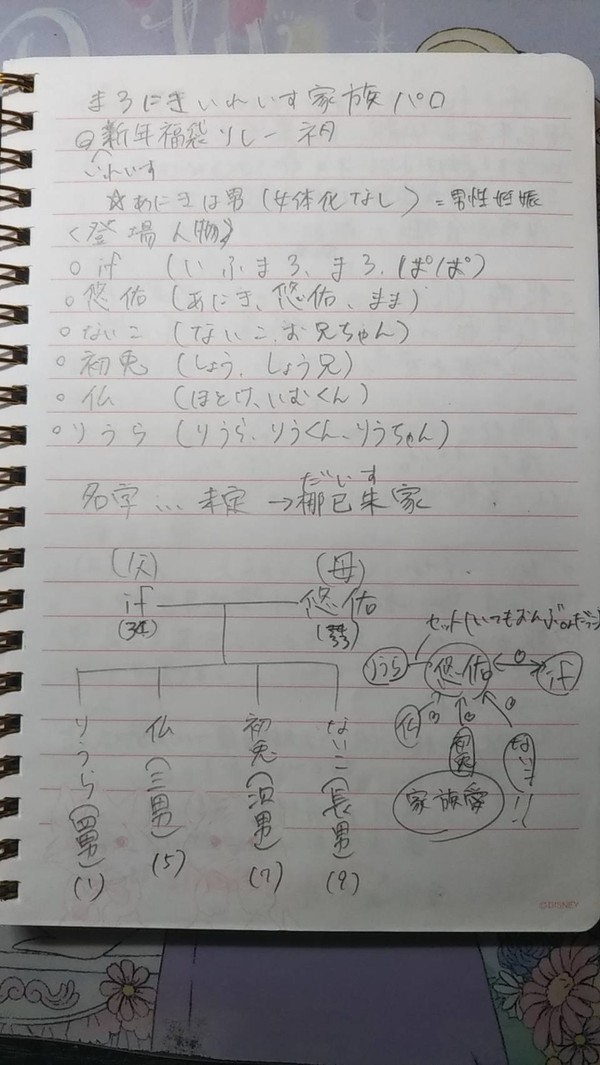 まろにきいれいす家族パロ
新年福袋リレー ネタ
いれいす
☆あにきは男(女体化なし)=男性妊娠
<登場人物>
○ if (いふまろ、まろ、ぱぱ)
○ 悠佑 (あにき、悠佑、まま)
○ ないこ (ないこ、お兄ちゃん)
○ 初兎 (しょう、しょう兄)
○ 仏 (ほとけ、いむくん)
○ りうら (りうら、りうくん、りうちゃん)
だいす
名字…未定→梛已朱家
(父) (母)
if 悠佑
(34) (33)
セット(いつもおんぶorだっこ)
りうら 悠佑 if
仏 初兎 ないこ!!
家族愛
りうら(四男)(1)
仏(三男)(5)
初兎(次男)(7)
ないこ(長男)(9)
©DISNEY